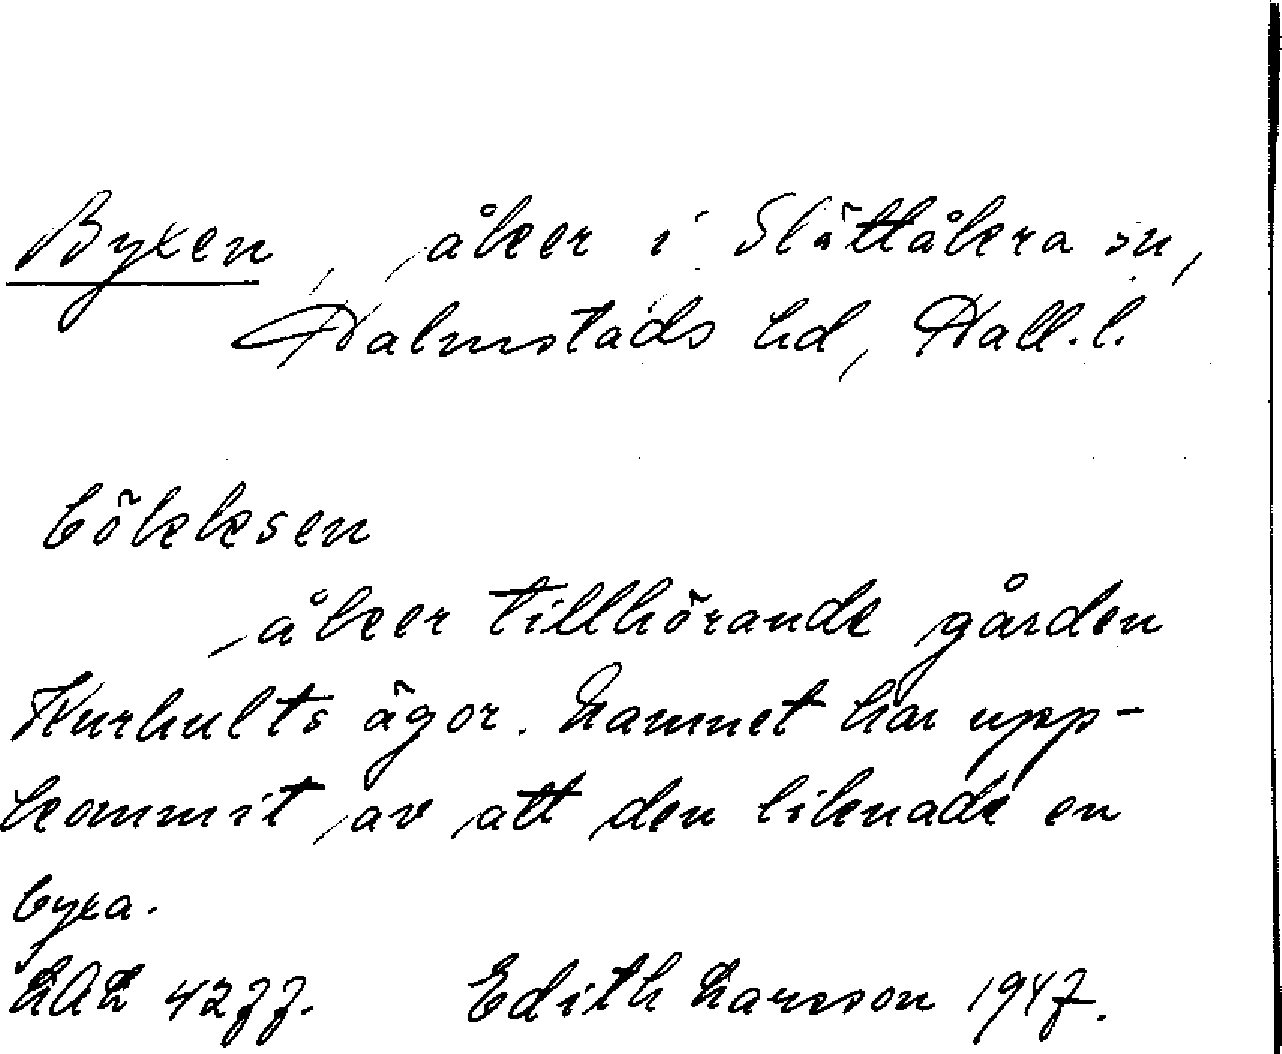 Byxen, åker i Slättåkra sn,
Halmstads hd, Hall.l.
bökksen
åker tillhörande gården
Kurhults ägor. Namnet har upp-
kommit av att den liknade en
byxa.
LAL 4277. Edith Larsson 1947.